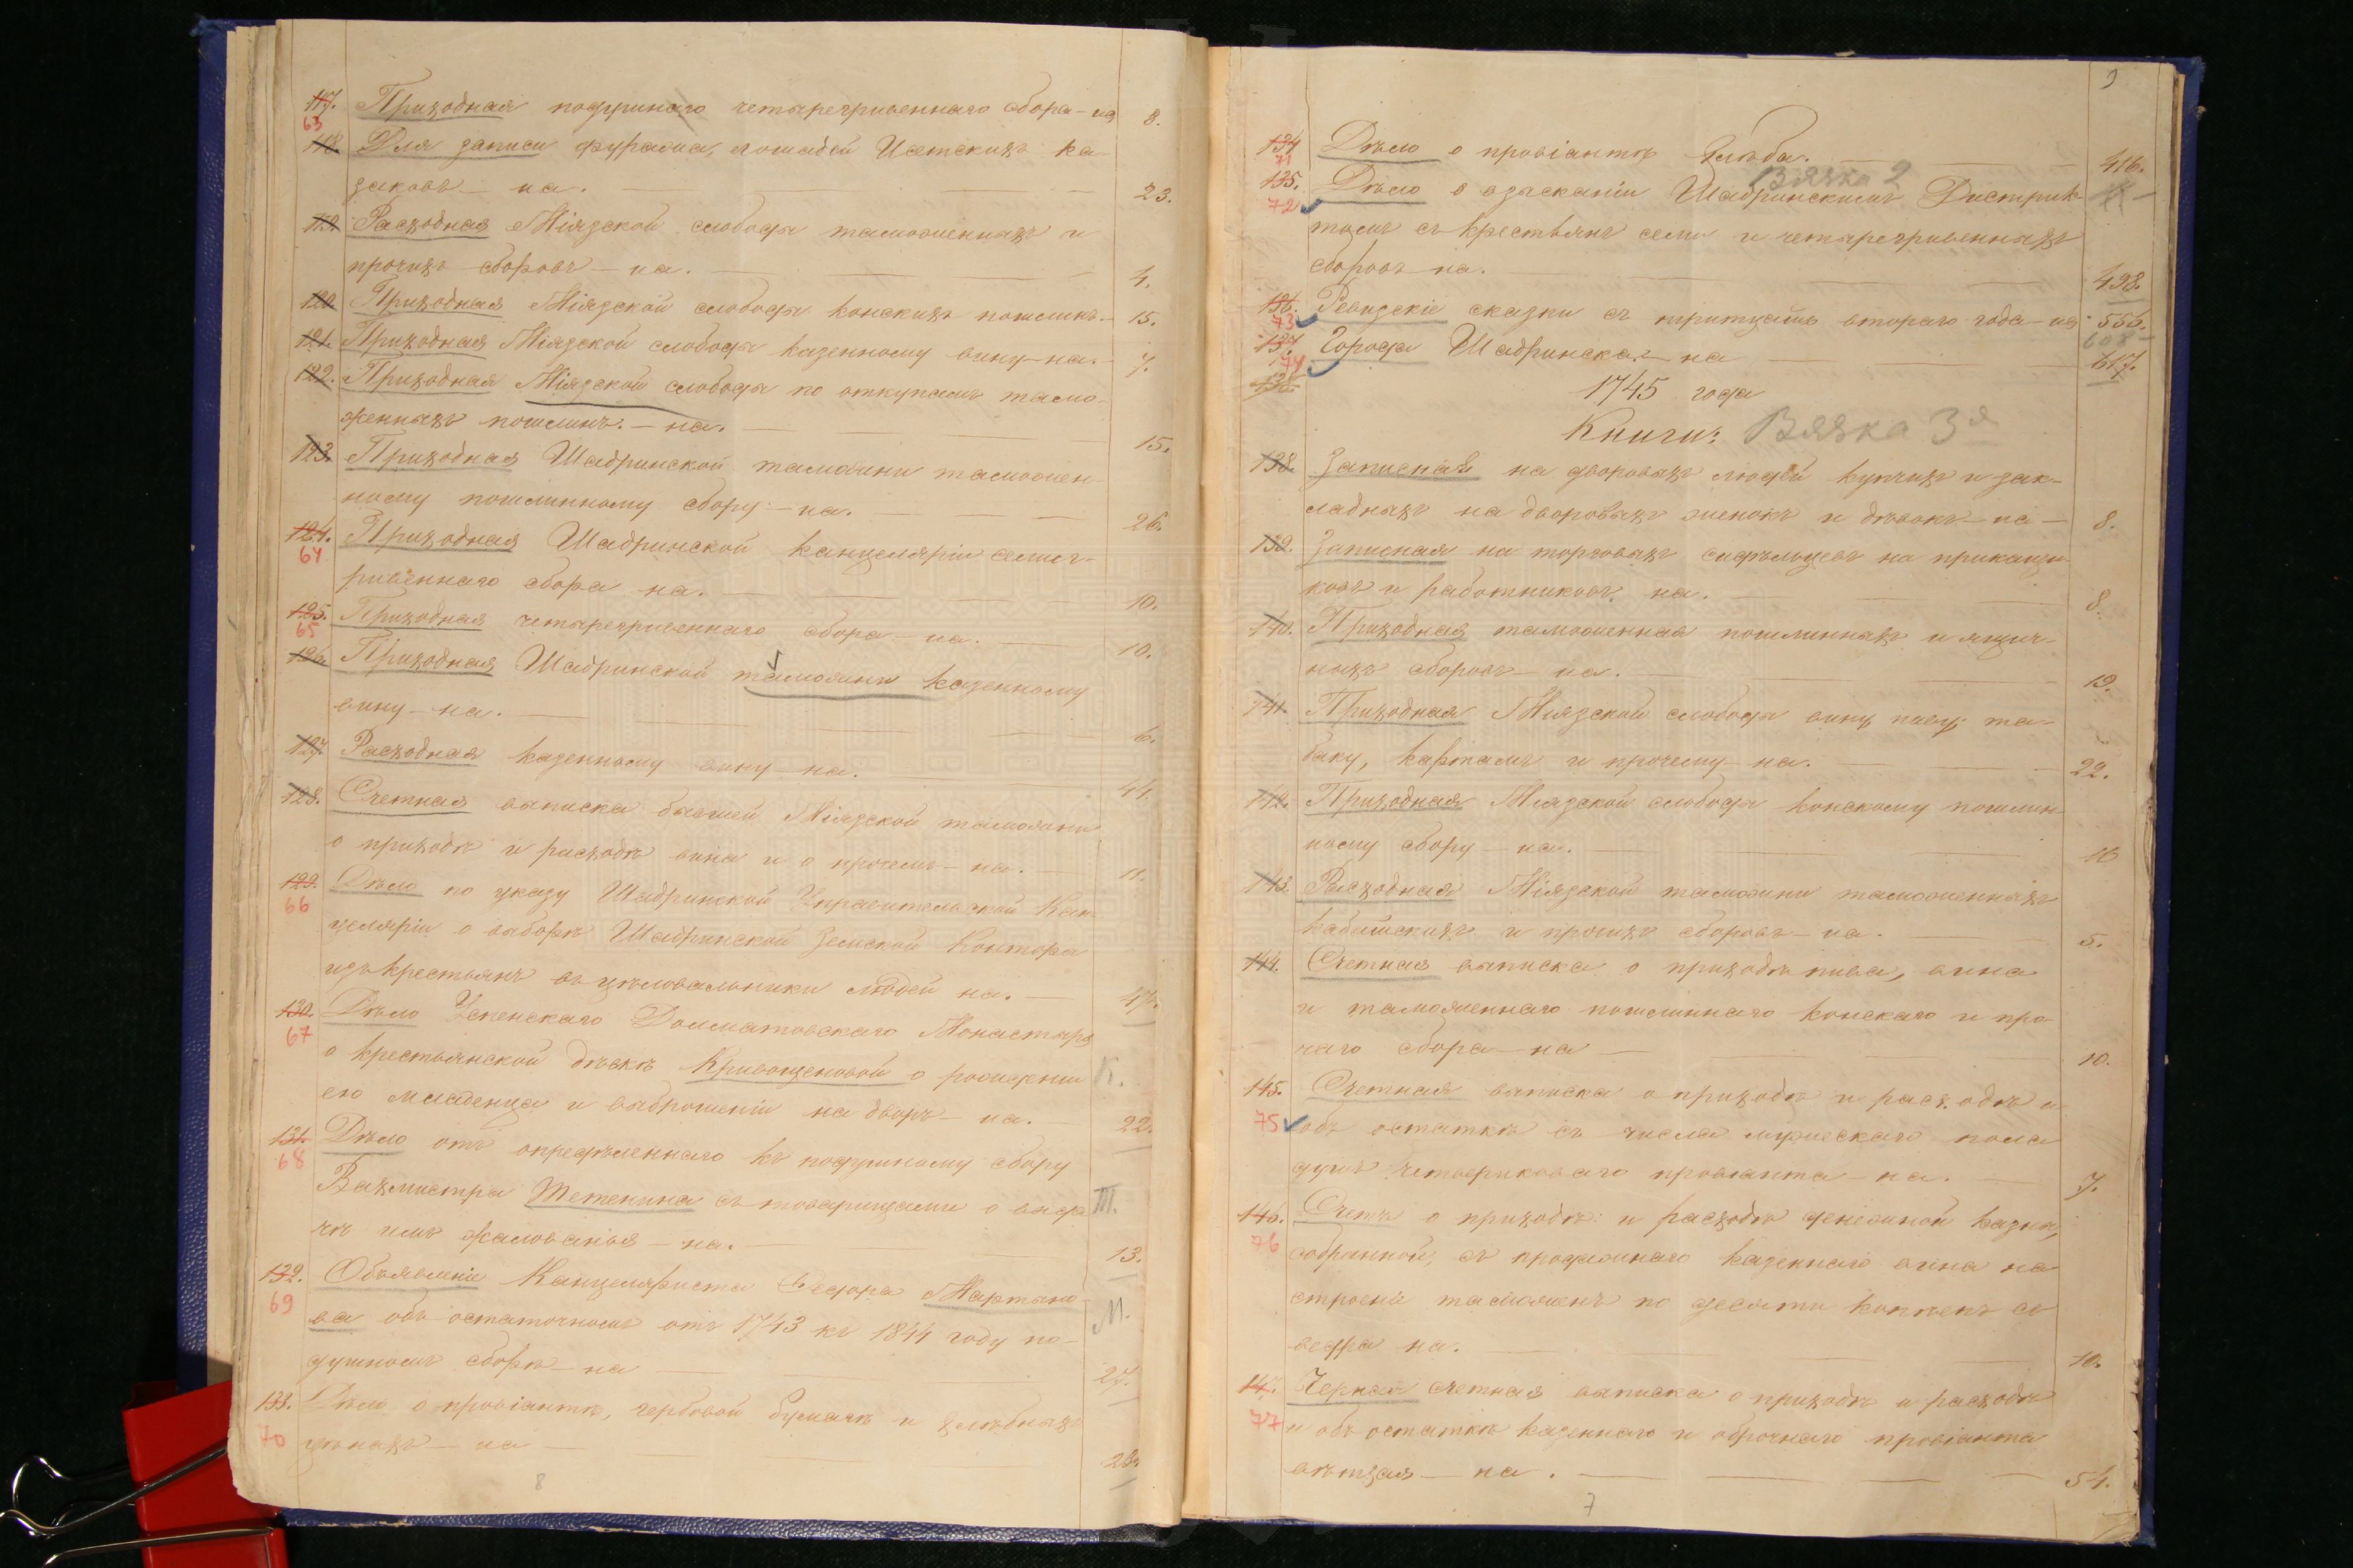 117. Приходная подушнаго четырегривеннаго сбора – на 8.
63
118. Для записи фуража, лошадей Исетскихъ ка-
заковъ – на. 23.
119. Расходная Міязской слободы таможенныхъ и
прочихъ сборовъ – на. 4.
120. Приходная Міязской слободы конскихъ пошлинъ – 15.
121. Приходная Міязской слободы казенному вину – на. 7.
122. Приходная Міязской слободы по откупамъ тамо-
женныхъ пошлинъ. – на. 15.
123. Приходная Шадринской таможни таможен-
ному пошлинному сбору: – на. 26.
124. Приходная Шадринской канцеляріи семиг-
64
ривеннаго сбора на. 10.
125. Приходная четырегривеннаго сбора – на. 10.
65
126. Приходная Шадринской таможни казенному
вину – на. 6.
127. Расходная казенному вину – на. 44.
128. Счетная выписка бывшей Міязской таможни
о приходѣ и расходѣ вина и о прочемъ – на. 11.
129. Дѣло по указу Шадринской Управительской Кан-
66
целяріи о выборѣ Шадринской Земской Конторы
изъ крестьянъ въ цѣловальники людей на. 47.
130. Дѣло Успенскаго Долматовскаго Монастыря
67
о крестьянской дѣвкѣ Кривощековой о рожденіи К.
ею младенца и выброшеніи на дворъ – на. 22.
131. Дѣло отъ опредѣленнаго къ подушному сбору
68
Вахмистра Тетенина съ товарищами о выда- Т.
чѣ имъ жалованья – на. 13.
132. Объявленіе Канцеляриста Федора Мартыно-
69
ва объ остаточномъ отъ 1743 къ 1844 году по- М.
душномъ сборѣ – на 27.
133. Дѣло о провіантѣ, гербовой бумагѣ и хлѣбныхъ
70
цѣнахъ – на – 28.
8
9
134 Дѣло о провіантѣ хлѣба. 416.
71
Вязка 2
135. Дѣло о взысканіи Шадринскимъ Дистрик-
72
томъ съ крестьянъ семи и четырегривенныхъ
сборовъ – на. 498.
136. Ревизскіе сказки съ тритцать втораго года – на 556.
73
137. Города Шадринска. – на 617.
74
138.
1745 года
Книги: Вязка 3я
138. Записная на дворовыхъ людей купчихъ и зак-
ладныхъ на дворовыхъ женокъ и дѣвокъ – на – 8.
139. Записная на торговыхъ сидѣльцевъ на прикащи-
ковъ и работниковъ на. 8.
140. Приходная таможенная пошлинныхъ и ящич-
ныхъ сборовъ – на. 19.
141. Приходная Міязской слободы вину пиву, та-
баку, картамъ и прочему – на. 22.
142. Приходная Міязской слободы конскому пошлин-
ному сбору – на. 16
143. Расходная Міязской таможни таможенныхъ
кабатскихъ и прочихъ сборовъ – на. 5.
144. Счетная выписка о приходѣ пива, вина
и таможеннаго пошлиннаго конскаго и про-
чаго сбора – на – 10.
145. Счетная выписка о приходѣ и расходѣ и
75
объ остаткѣ съ числа мужескаго пола
душъ четвериковаго провіанта – на. 7.
146. Счетъ о приходѣ и расходѣ денежной казны,
76
собранной, съ продажнаго казеннаго вина на
строеніе таможенъ по десяти копѣекъ съ
ведра на. 10.
147. Черная счетная выписка о приходѣ и расходѣ
77
и объ остаткѣ казеннаго и оброчнаго провіанта
– на. 54.
7